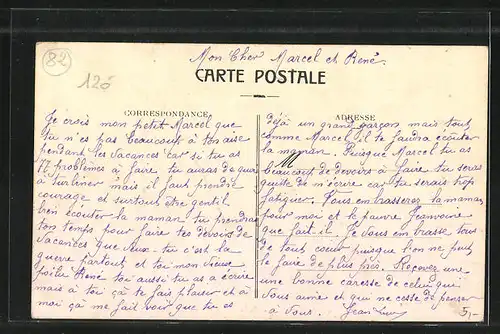 82
120
Mon Cher Marcel et René.
CARTE POSTALE
CORRESPONDANCE
ADRESSE
Je crois mon petit Marcel que
tu n'es pas beaucoup à ton aise
pendant les vacances car si tu as
77 problèmes à faire tu auras de quoi
à turbiner mais il faut prendre
courage et surtout être gentil
bien écouter la maman tu prendras
ton temps pour faire tes devoirs de
vacances que veux-tu c'est la
guerre partout et toi mon vieux
poilu René toi aussi tu as à écrire
mais à toi ça te fait plaisir et à
moi ça me fait voir que tu es
déjà un grand garçon mais tout
comme Marcel il te faudra écouter
la maman. Puisque Marcel tu as
beaucoup de devoirs à faire tu seras
quitte de m'écrire car tu serais trop
fatiguer. Vous embrasserez la maman
pour moi et le pauvre
que fait il. Je vous embrasse tous
de tout cœur puisque l'on ne peut
le faire de plus près. Recevez une
une bonne caresse de celui qui
vous aime et qui ne cesse de penser
à vous. Jean
5,-